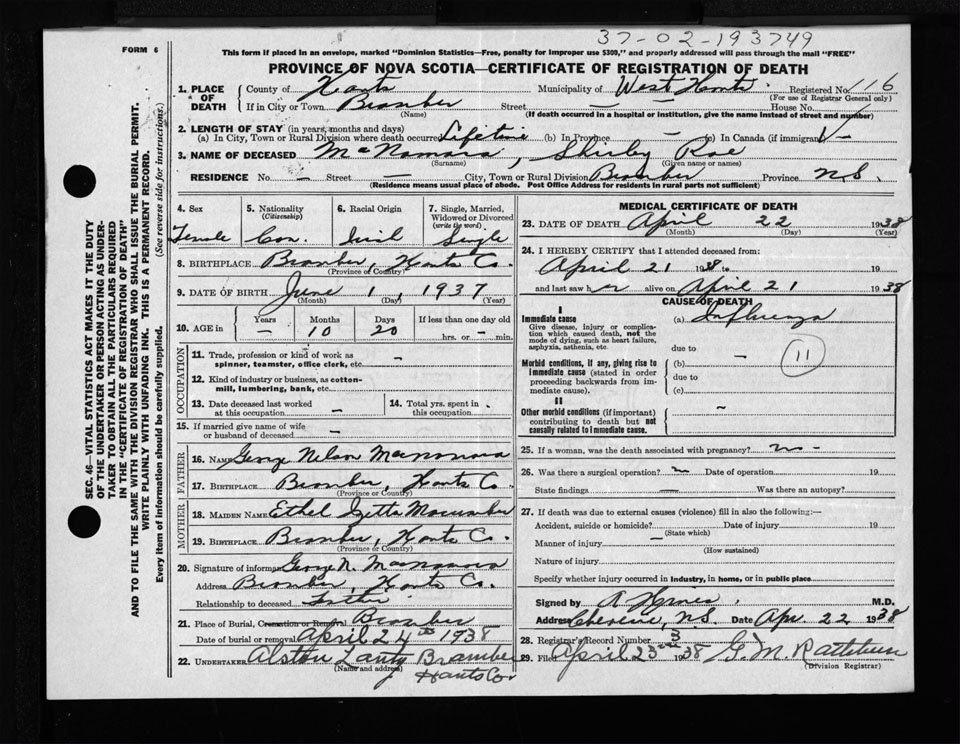 37-02-193749
FORM 6
This form if placed in an envelope, marked "Dominion Statistics—Free, penalty for improper use $300," and properly addressed will pass through the mail "FREE"
PROVINCE OF NOVA SCOTIA—CERTIFICATE OF REGISTRATION OF DEATH
1. PLACE OF DEATH County of Hants Municipality of West Hants Registered No. 116
(For use of Registrar General only)
If in City or Town Bramber Street — House No.
(Name) (If death occurred in a hospital or institution, give the name instead of street and number)
2. LENGTH OF STAY (in years, months and days)
(a) In City, Town or Rural Division where death occurred Lifetime (b) In Province — (c) In Canada (if immigrant)
3. NAME OF DECEASED McNamara, Shirley Rae
(Surname) (Given name or names)
RESIDENCE No. — Street — City, Town or Rural Division Bramber Province N.S.
(Residence means usual place of abode. Post Office Address for residents in rural parts not sufficient)
4. Sex Female
5. Nationality (Citizenship) Can.
6. Racial Origin
7. Single, Married, Widowed or Divorced (write the word) Single
8. BIRTHPLACE Bramber, Hants Co.
(Province or Country)
9. DATE OF BIRTH June 1, 1937
(Month) (Day) (Year)
10. AGE in Years — Months 10 Days 20 If less than one day old
hrs. or — min.
OCCUPATION
11. Trade, profession or kind of work as spinner, teamster, office clerk, etc. —
12. Kind of industry or business, as cotton-mill, lumbering, bank, etc. —
13. Date deceased last worked at this occupation —
14. Total yrs. spent in this occupation -
15. If married give name of wife or husband of deceased —
FATHER
16. NAME George Nelson Macnamara
17. BIRTHPLACE Bramber, Hants Co.
(Province or Country)
MOTHER
18. MAIDEN NAME Ethel Izetta Macumber
19. BIRTHPLACE Bramber, Hants Co.
(Province or Country)
20. Signature of informant George N. Macnamara
Address Bramber, Hants Co.
Relationship to deceased Father
21. Place of Burial, Cremation or Removal Bramber
Date of burial or removal April 24th 1938
22. UNDERTAKER Alston Lantz Bramber
(Name and address) Hants Co
MEDICAL CERTIFICATE OF DEATH
23. DATE OF DEATH April 22 1938
(Month) (Day) (Year)
24. I HEREBY CERTIFY that I attended deceased from:
April 21 1938 to 19
and last saw her alive on April 21 1938
CAUSE OF DEATH
Immediate cause (a) Influenza
Give disease, injury or complication which caused death, not the mode of dying, such as heart failure, asphyxia, asthenia, etc.
due to
11
Morbid conditions, if any, giving rise to immediate cause (stated in order proceeding backwards from immediate cause).
(b) —
due to
(c)
II
Other morbid conditions (if important) contributing to death but not causally related to immediate cause.
25. If a woman, was the death associated with pregnancy? no -
26. Was there a surgical operation? Date of operation 19
State findings — Was there an autopsy?
27. If death was due to external causes (violence) fill in also the following:—
Accident, suicide or homicide? Date of injury 19
(State which)
Manner of injury —
(How sustained)
Nature of injury
Specify whether injury occurred in industry, in home, or in public place
Signed by M.D.
Address Cheverie, N.S. Date Apr 22 1938
28. Registrar's Record Number 3
29. Filed April 23rd 1938 G. M. Rathbun
(Division Registrar)
SEC. 46—VITAL STATISTICS ACT MAKES IT THE DUTY
OF THE UNDERTAKER OR PERSON ACTING AS UNDER-
TAKER TO OBTAIN ALL THE PARTICULARS REQUIRED
IN THE "CERTIFICATE OF REGISTRATION OF DEATH"
AND TO FILE THE SAME WITH THE DIVISION REGISTRAR WHO SHALL ISSUE THE BURIAL PERMIT.
WRITE PLAINLY WITH UNFADING INK. THIS IS A PERMANENT RECORD.
Every item of information should be carefully supplied. (See reverse side for instructions.)